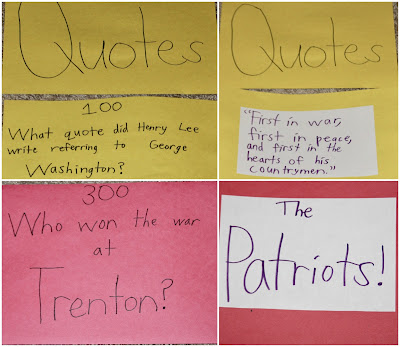 Quotes
100
What quote did Henry Lee
write referring to George
Washington?
Quotes
"First in war,
first in peace,
and first in the
hearts of his
countrymen."
300
Who won the war
at
Trenton?
The
Patriots!